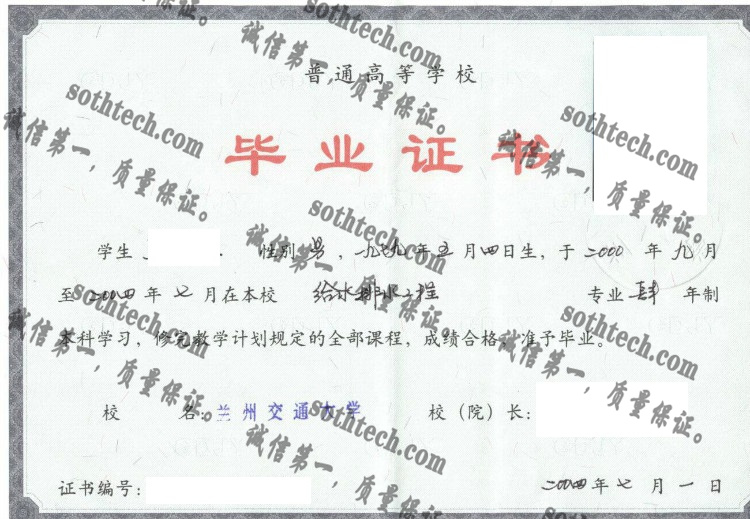 普通高等学校
毕业证书
学生 性别 男，一九 年五月四日生，于二000年九月
至二00四年七月在本校 给水排水工程 专业肆年制
本科学习，修完教学计划规定的全部课程，成绩合格，准予毕业。
校 名：兰州交通大学 校（院）长：
证书编号： 二00四年七月一日
sothtech.com
诚信第一，质量保证。
sothtech.com
诚信第一，质量保证。
sothtech.com
诚信第一，质量保证。
sothtech.com
诚信第一，质量保证。
sothtech.com
诚信第一，质量保证。
sothtech.com
诚信第一，质量保证。
sothtech.com
诚信第一，质量保证。